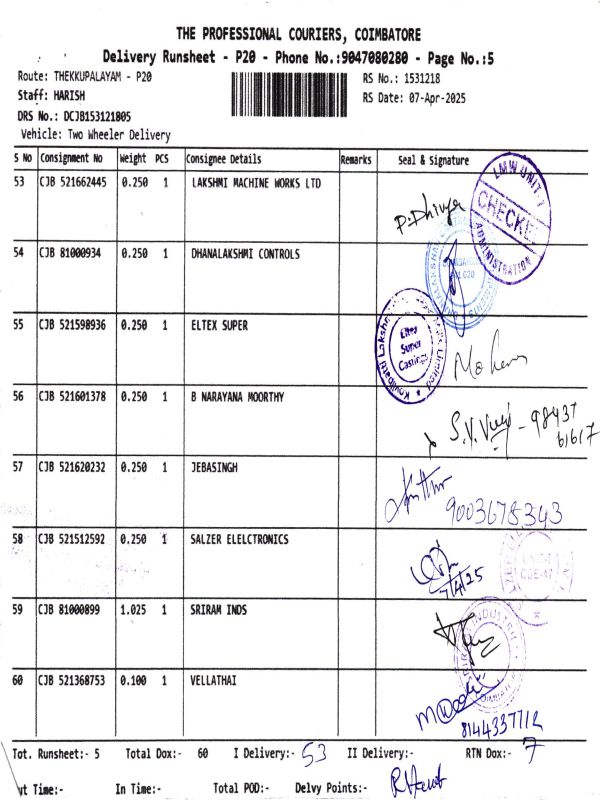 THE PROFESSIONAL COURIERS, COIMBATORE
Delivery Runsheet - P20 - Phone No.:9047080280 - Page No.:5
Route: THEKKUPALAYAM - P20 RS No.: 1531218
Staff: HARISH RS Date: 07-Apr-2025
DRS No.: DCJB153121805
Vehicle: Two Wheeler Delivery
S No Consignment No Weight PCS Consignee Details Remarks Seal & Signature
53 CJB 521662445 0.250 1 LAKSHMI MACHINE WORKS LTD
LMW UNIT-1
CHECKED
ADMINISTRATION
P. Dhivya
54 CJB 81000934 0.250 1 DHANALAKSHMI CONTROLS
55 CJB 521598936 0.250 1 ELTEX SUPER
Eltex
Super
Castings
Limited
Mohan
56 CJB 521601378 0.250 1 B NARAYANA MOORTHY
S.V. - 98437
61617
57 CJB 521620232 0.250 1 JEBASINGH
9003678343
58 CJB 521512592 0.250 1 SALZER ELELCTRONICS
7/4/25
59 CJB 81000899 1.025 1 SRIRAM INDS
60 CJB 521368753 0.100 1 VELLATHAI
8144337712
Tot. Runsheet:- 5 Total Dox:- 60 I Delivery:- 53 II Delivery:- RTN Dox:- 7
ut Time:- In Time:- Total POD:- Delvy Points:-